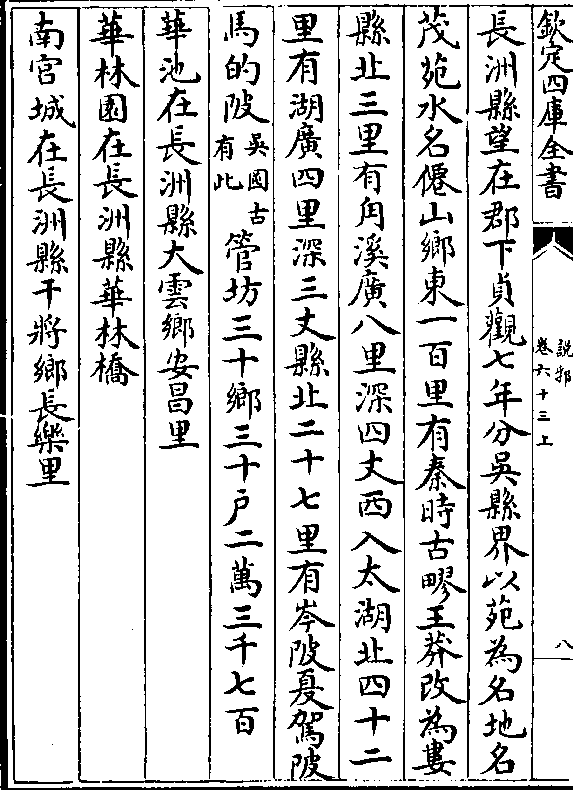 欽定四庫全書
說郛
卷六十三上
八
長洲縣望在郡下貞觀七年分吳縣界以苑為名地名
茂苑水名僊山鄉東一百里有秦時古疁王莽改為婁
縣北三里有角溪廣八里深四丈西入太湖北四十二
里有湖廣四里深三丈縣北二十七里有岑陂戞駕陂
馬的陂吳國古有此管坊三十鄉三十戶二萬三千七百
華池在長洲縣大雲鄉安昌里
華林園在長洲縣華林橋
南宮城在長洲縣干將鄉長樂里